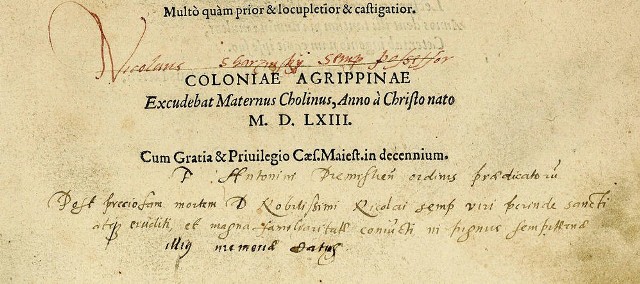 Multò quàm prior & locupletior & castigatior.
Nicolaus semp possessor
COLONIAE AGRIPPINAE
Excudebat Maternus Cholinus, Anno à Christo nato
M. D. LXIII.
Cum Gratia & Priuilegio Cæs. Maiest. in decennium.
F Antonius ordinis prædicatorũ
Post preciosam mortem D Nobilissimi Nicolai semp viri perinde sancti
atq; eruditi, et magna familiaritate coniũcti in pignus sempiternæ
illiꝰ memoriæ datus